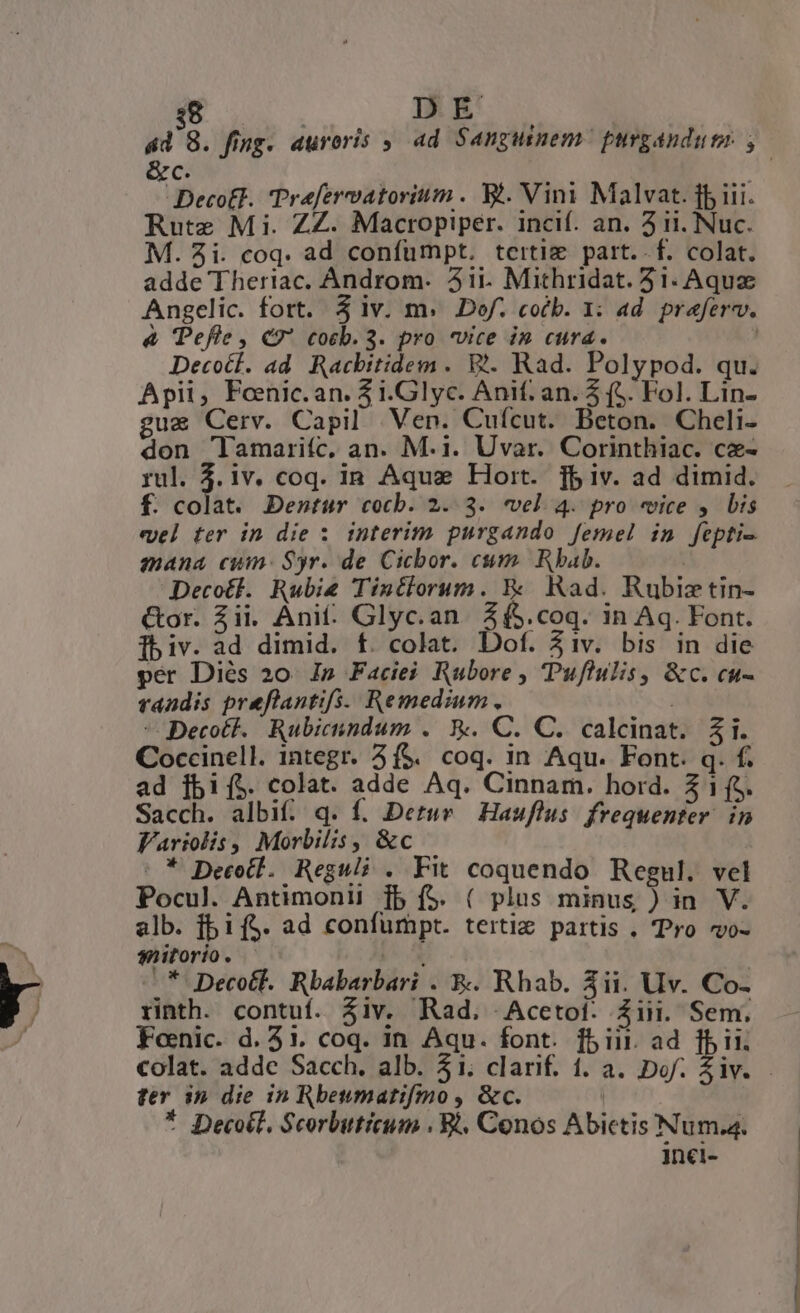 38 DE
ad 8. ſing. auroris, ad Sanguinem purgandum,
&c.
Decoct. Præſervatorium. ℞. Vini Malvat. ℔ iii.
Rutæ Mi. ZZ. Macropiper. inciſ. an. ʒ ii. Nuc.
M. ʒi. coq. ad conſumpt. tertiæ part. f. colat.
adde Theriac. Androm. ʒ ii. Mithridat. ʒ i. Aquæ
Angelic. fort. ℥ iv. m. Doſ. coch. 1. ad præſerv.
à Peſte, & coch. 3. pro vice in cura.
Decoct. ad Rachitidem. ℞. Rad. Polypod. qu.
Apii, Fœnic. an. ℥ i. Glyc. Aniſ. an. ℥ ß. Fol. Lin-
guæ Cerv. Capil Ven. Cuſcut. Beton. Cheli-
don Tamariſc. an. M. i. Uvar. Corinthiac. cæ-
rul. ℥. iv. coq. in Aquæ Hort. ℔ iv. ad dimid.
f. colat. Dentur coch. 2. 3. vel 4. pro vice, bis
vel ter in die: interim purgando ſemel in ſepti-
mana cum Syr. de Cichor. cum Rhab.
Decoct. Rubiæ Tinctorum. ℞ Rad. Rubiæ tin-
ctor. ℥ii. Aniſ. Glyc. an ℥ß. coq. in Aq. Font.
℔iv. ad dimid. f. colat. Doſ. ℥iv. bis in die
per Diès 20 In Faciei Rubore, Puſtulis, &c. cu-
randis præſtantiſs. Remedium.
Decoct. Rubicundum. ℞. C. C. calcinat. ℥ i.
Coccinell. integr. ʒ ß. coq. in Aqu. Font. q. ſ.
ad ℔ i ß. colat. adde Aq. Cinnam. hord. ℥ i ß.
Sacch. albiſ. q. ſ. Detur Hauſtus frequenter in
Variolis, Morbilis, &c
* Decoct. Reguli. Fit coquendo Regul. vel
Pocul. Antimonii ℔ ß. ( plus minus ) in V.
alb. ℔ i ß. ad conſumpt. tertiæ partis. Pro vo-
mitorio.
* Decoct. Rhabarbari. ℞. Rhab. ℥ii. Uv. Co-
rinth. contuſ. ℥iv. Rad. Acetoſ. ℥iii. Sem.
Fœnic. d. ʒ i. coq. in Aqu. font. ℔ iii. ad ℔ ii.
colat. adde Sacch. alb. ℥ i. clarif. ſ. a. Doſ. ℥ iv.
ter in die in Rheumatiſmo, &c.
* Decoct. Scorbuticum. ℞. Conos Abietis Num. 4.
inci-